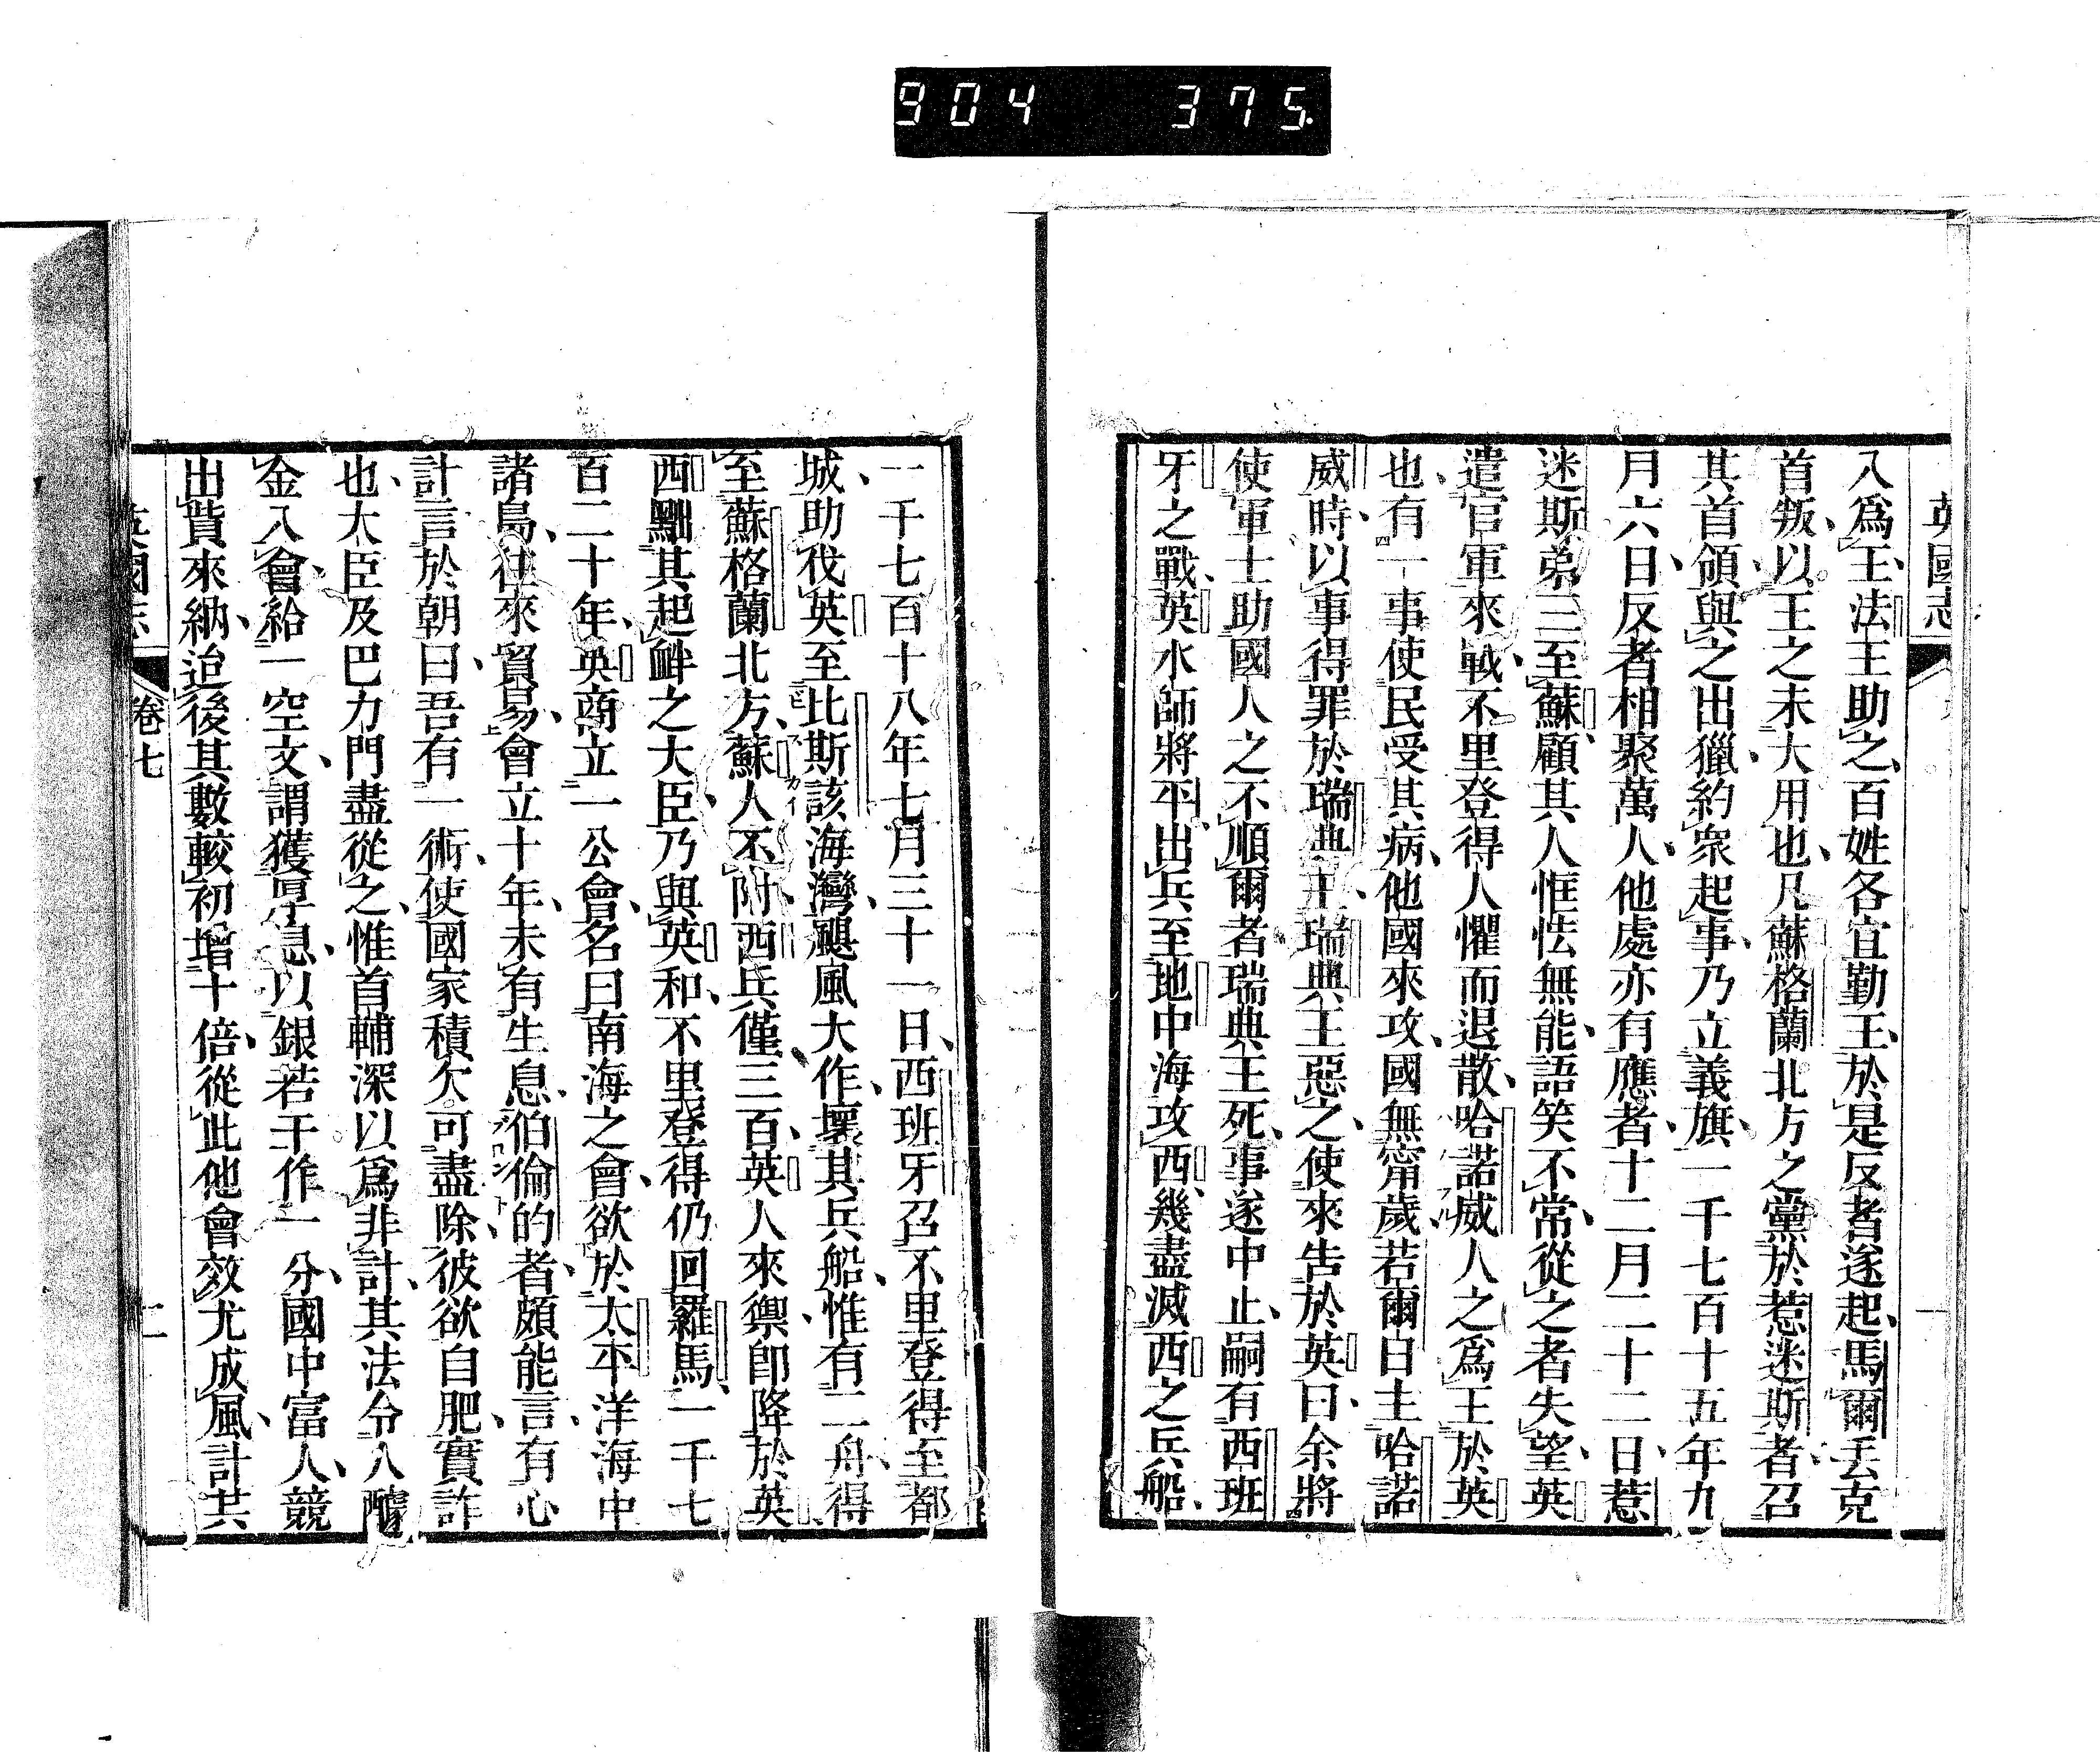 904 375
英國志
入爲王、法王助之、百姓各宜勤王、於是反者遂起、馬爾丢克
首叛、以王之未大用也、凡蘇格蘭北方之黨於惹迷斯者、召
其首領與之出獵、約衆起事、乃立義旗、一千七百十五年九
月六日、反者相聚萬人、他處亦有應者、十二月二十二日、惹
迷斯弟三至蘇、顧其人恇怯無能、語笑不常、從之者失望、英
遣官軍來戰、不里登得人懼而退散、哈諾威人之爲王於英
也、有一事使民受其病、他國來攻、國無甯歲、若爾日主哈諾
威時、以事得罪於瑞典王、瑞典王惡之、使來告於英曰、余將
使軍士助國人之不順爾者、瑞典王死、事遂中止、嗣有西班
牙之戰、英水師將平、出兵至地中海攻西、幾盡滅西之兵船、
一千七百十八年七月三十一日、西班牙召不里登得至都
城、助伐英、至比斯該海灣、颶風大作、壞其兵船、惟有二舟、得
至蘇格蘭北方、蘇人不附、西兵僅三百、英人來禦、卽降於英
西黜其起衅之大臣、乃與英和、不里登得仍回羅馬、一千七
百二十年、英商立一公會、名曰南海之會、欲於太平洋海中
諸島、往來貿易、會立十年、未有生息、伯倫的者、頗能言、有心
計、言於朝曰、吾有一術、使國家積欠可盡除、彼欲自肥、實詐
也、大臣及巴力門盡從之、惟首輔深以爲非計、其法令人醵
金入會、給一空文、謂獲厚息、以銀若干作一分、國中富人、競
出貲來納、迨後其數較初增十倍、從此他會效尤成風、計共
英國志
卷七
二